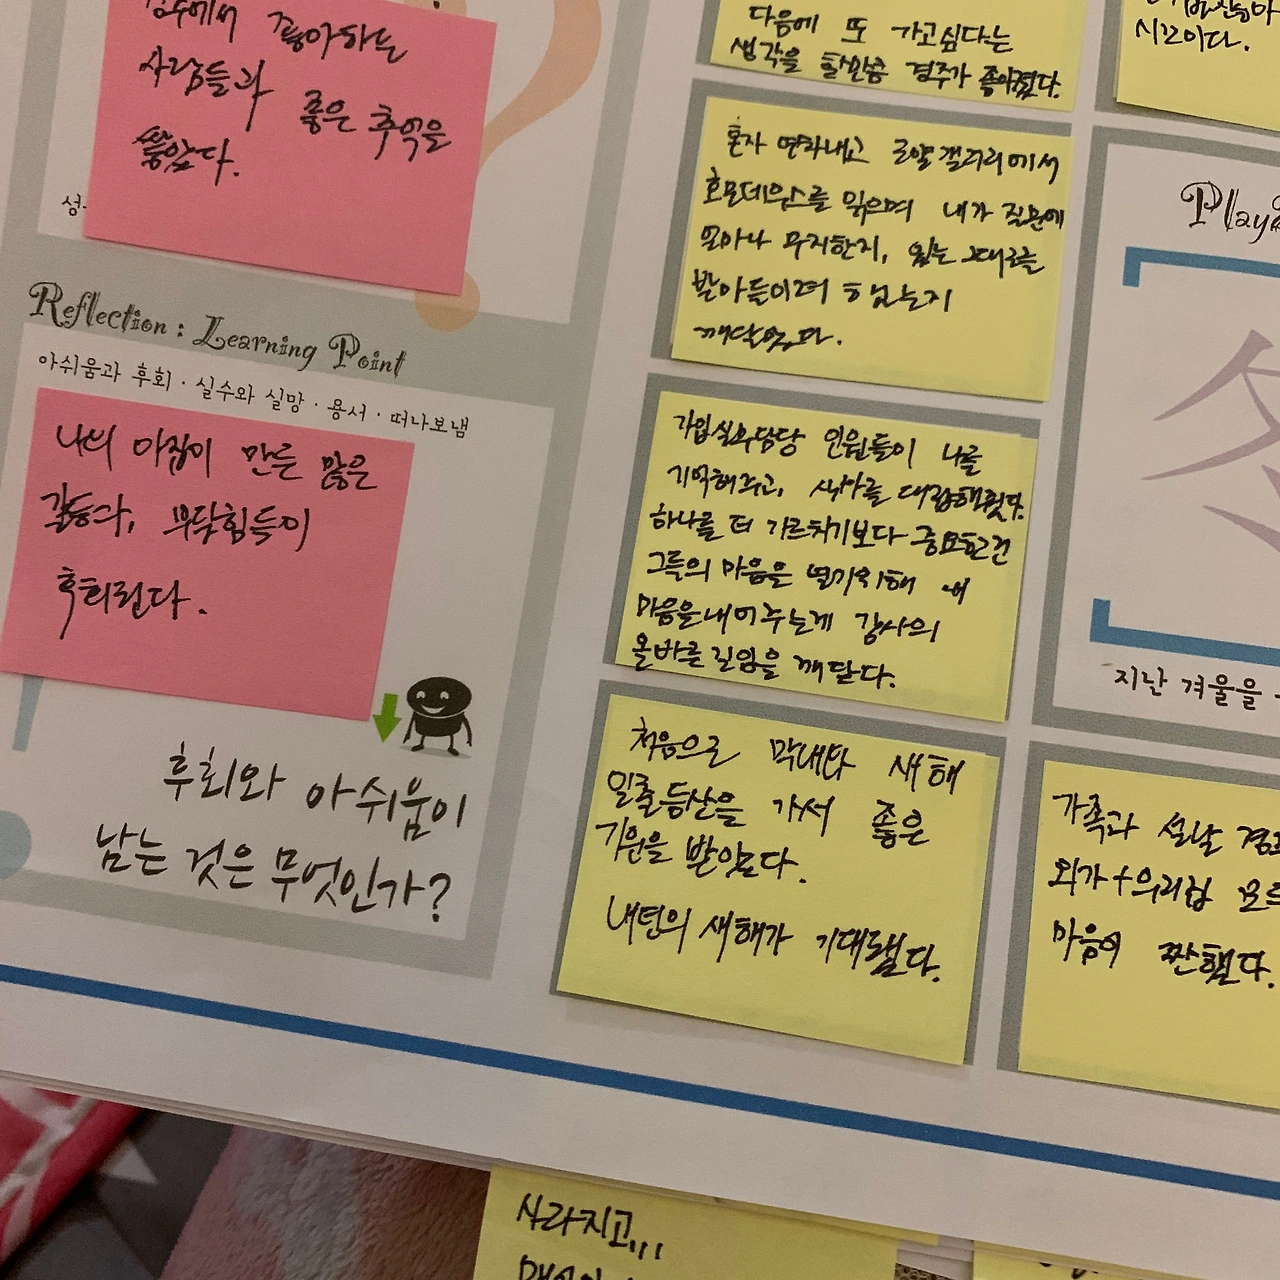 경주에서 좋아하는
사람들과 좋은 추억을
쌓았다.
성
Reflection : Learning Point
아쉬움과 후회 · 실수와 실망 · 용서 · 떠나보냄
나의 아집이 만든 많은
갈등과, 부딪힘들이
후회된다.
후회와 아쉬움이
남는 것은 무엇인가?
다음에 또 가고싶다는
생각을 할만큼 경주가 좋아졌다.
혼자 연차내고 로얄갤러리에서
호모데우스를 읽으며 내가 질문에
얼마나 무지한지, 있는 그대로를
받아들이려 했는지
깨달았다.
가입실무담당 인원들이 나를
기억해주고, 식사를 대접해줬다.
하나를 더 가르치기보다 중요한건
그들의 마음을 열기위해 내
마음을 내어주는게 강사의
올바른 길임을 깨닫다.
처음으로 막내와 새해
일출등산을 가서 좋은
기운을 받았다.
내년의 새해가 기대됐다.
시간이다.
Play
冬
지난 겨울을
가족과 설날
외가+우리집 모두
마음이 짠했다.
사라지고,,,